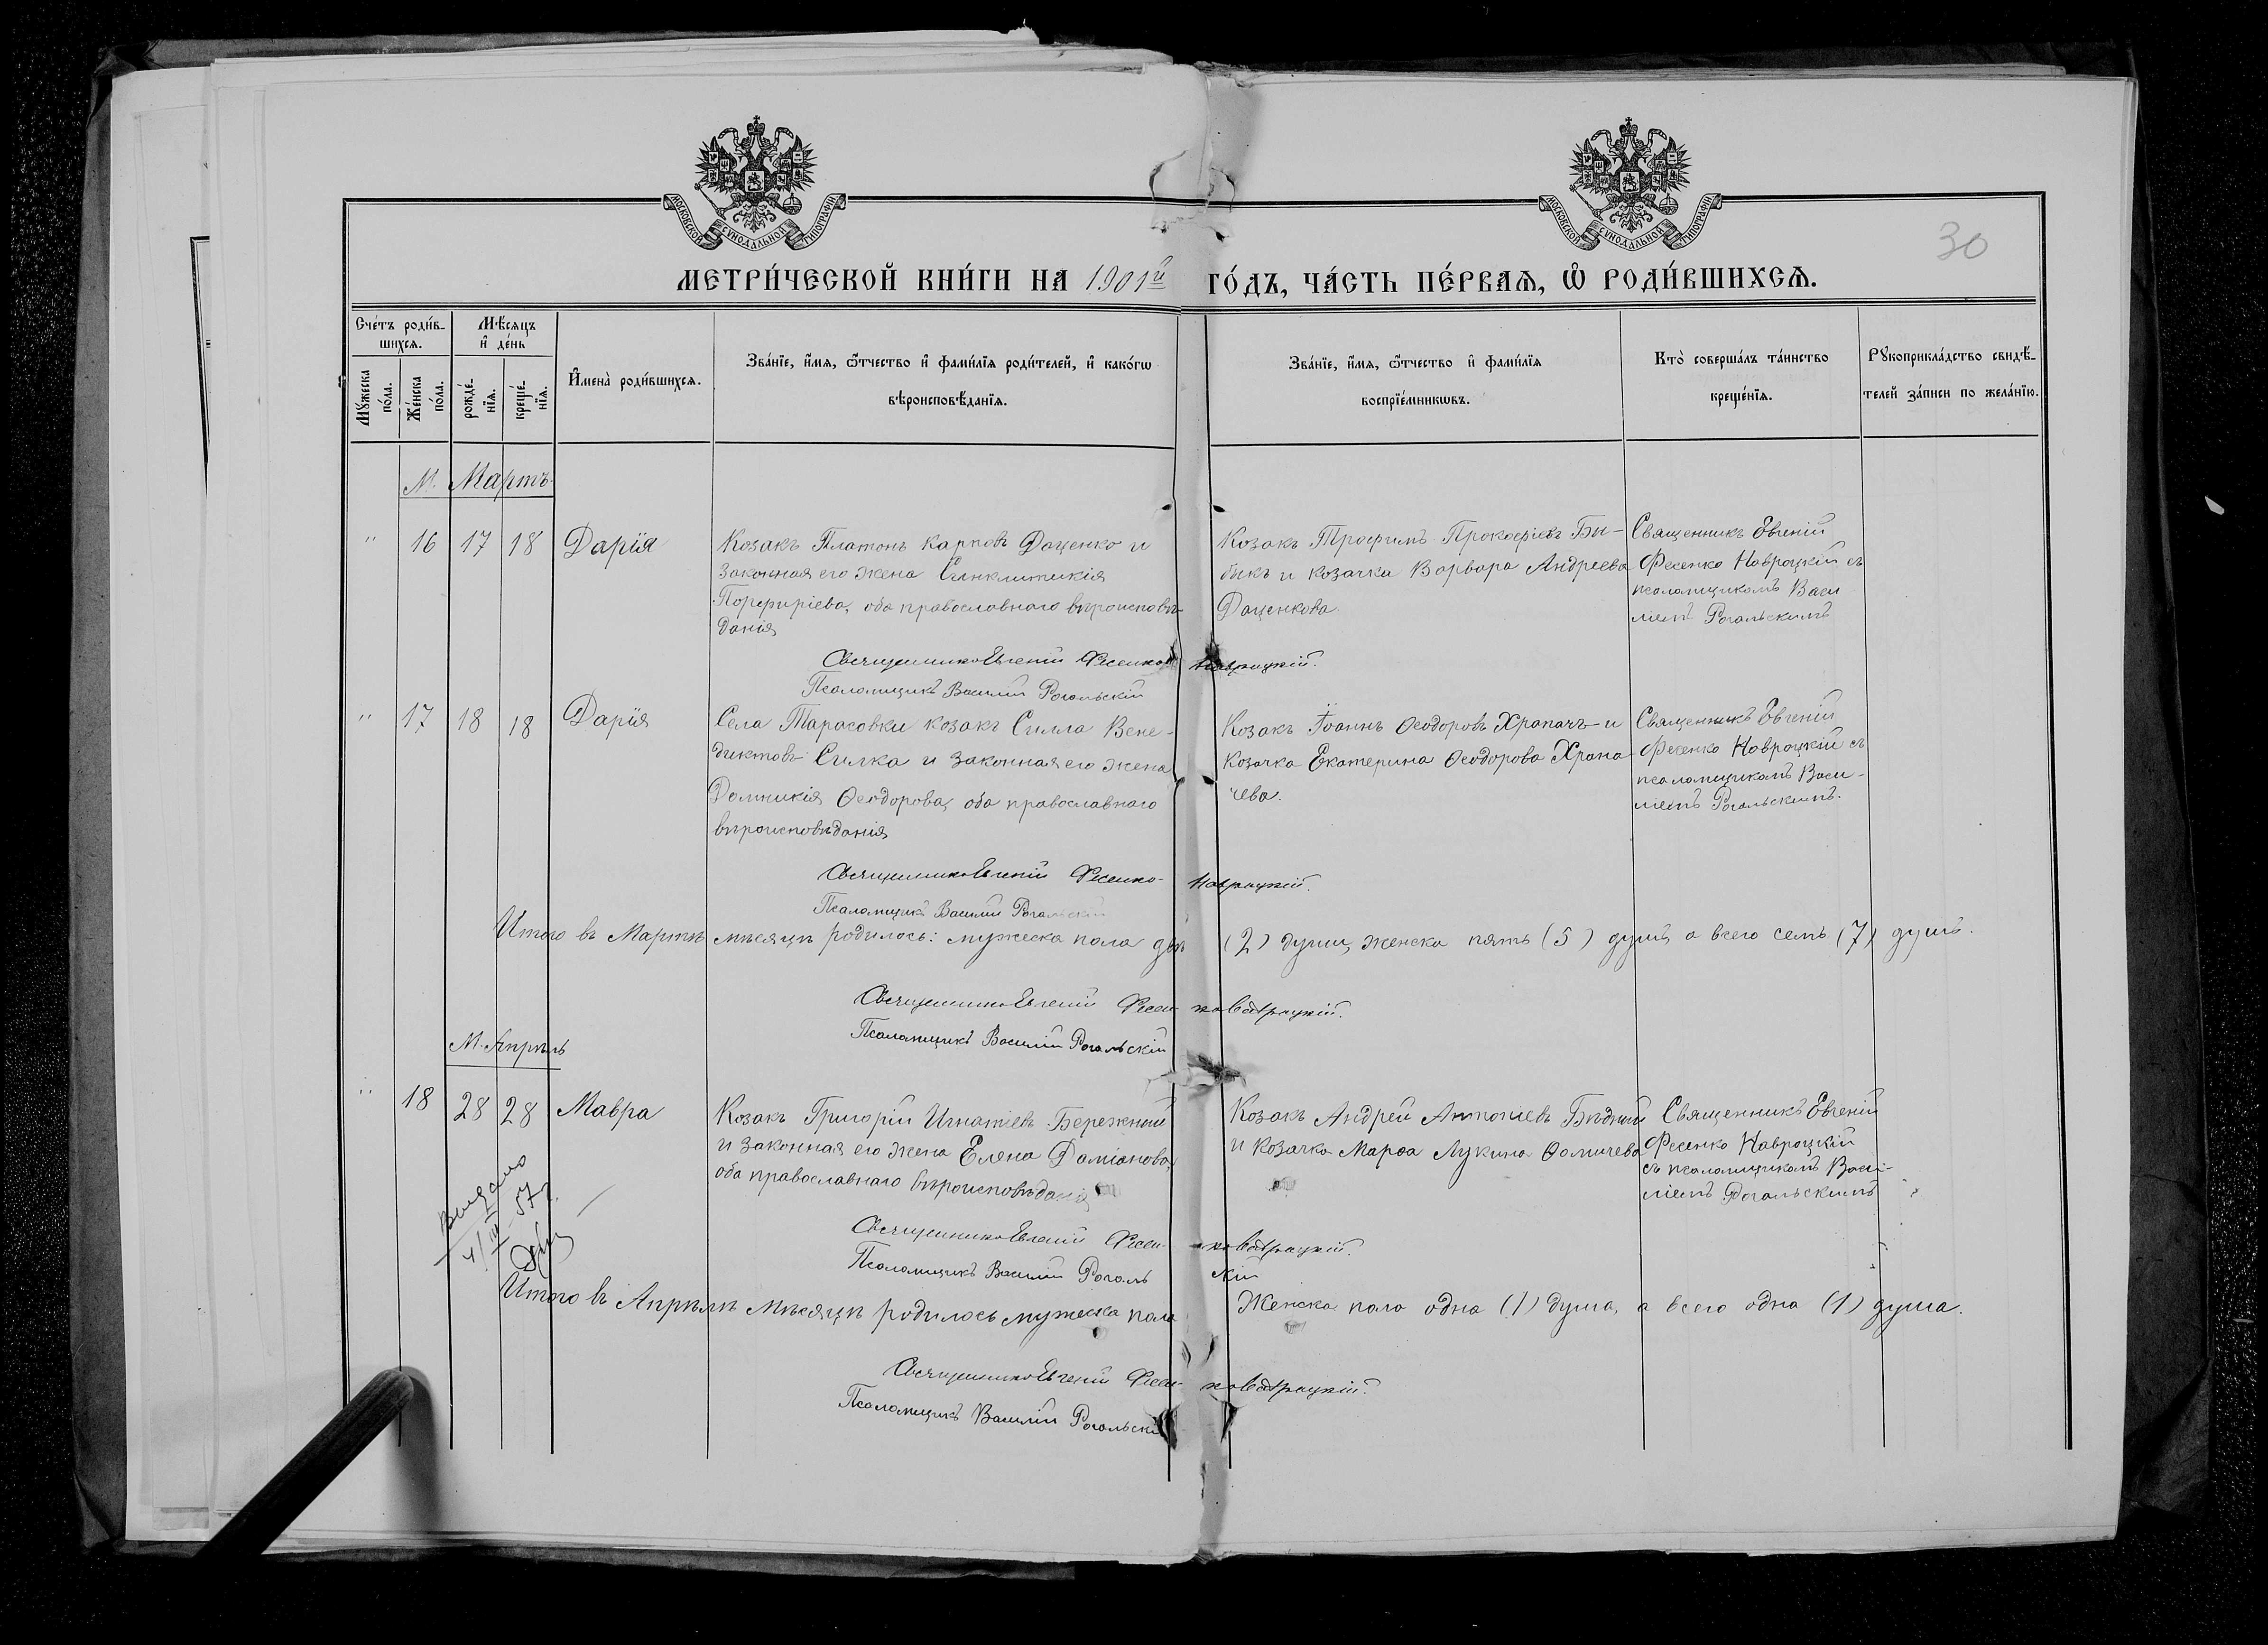 МОСКОВСКОЙ СѴНОДАЛЬНОЙ ТИПОГРАФІИ
МОСКОВСКОЙ СѴНОДАЛЬНОЙ ТИПОГРАФІИ
30
МЕТРИ́ЧЕСКОЙ КНИ́ГИ НА 1901й ГО́ДЪ, ЧА́СТЬ ПЕ́РВАѦ, Ѡ҆ РОДИ́ВШИХСѦ.
Сче́тъ роди́в-
шихсѧ.
Мꙋжеска
по́ла.
Же́нска
по́ла.
Мѣ́сѧцъ
и҆ де́нь
рожде́-
нїѧ.
креще́-
нїѧ.
И҆мена̀ роди́вшихсѧ.
Зва́нїе, и҆́мѧ, ѻ҆́тчество и҆ фами́лїѧ роди́телей, и҆ како́гѡ
вѣроисповѣ́данїѧ.
Зва́нїе, и҆́мѧ, ѻ҆́тчество и҆ фами́лїѧ
воспрїе́мникѡвъ.
Кто̀ соверша́лъ та́инство
креще́нїѧ.
Рꙋкоприкла́дство свидѣ́-
телей за́писи по жела́нїю.
М. Мартъ
" 16 17 18 Дарія
Козакъ Платонъ Карповъ Даценко и
законная его жена Синклитикія
Порфиріева, оба православнаго вѣроисповѣ-
данія
Козакъ Трофимъ Прокофіевъ Би-
быкъ и козачка Варвара Андреева
Даценкова.
Священникъ Евгеній
Фесенко Навроцкій съ
псаломщикомъ Васи
ліемъ Рогальскимъ
Священникъ Евгеній Фесенко Навроцкій.
Псаломщикъ Василій Рогальскій
" 17 18 18 Дарія
Села Тарасовки козакъ Силла Вене-
диктовъ Силка и законная его жена
Домникія Ѳеодорова, оба православнаго
вѣроисповѣданія
Козакъ Іоаннъ Ѳеодоровъ Храпачъ и
козачка Екатерина Ѳеодорова Храпа-
чева.
Священникъ Евгеній
Фесенко Навроцкій съ
псаломщикомъ Васи-
ліемъ Рогальскимъ.
Священникъ Евгеній Фесенко- Навроцкій.
Псаломщикъ Василій Рогальскій
Итого въ Мартѣ мѣсяцѣ родилось: мужеска пола двѣ (2) души, женска пять (5) душъ, а всего семь (7) душъ.
Священникъ Евгеній Фесенко Навроцкій.
Псаломщикъ Василій Рогальскій
М. Апрѣль
" 18 28 28 Мавра
Козакъ Григорій Игнатіевъ Бережный
и законная его жена Елена Даміанова,
оба православнаго вѣроисповѣданія
Козакъ Андрей Антоніевъ Бѣдный
и козачка Марѳа Лукина Ѳомичева
Священникъ Евгеній
Фесенко Навроцкій
съ псаломщикомъ Васи-
ліемъ Рогальскимъ
выдано
4/III-57 г.
Священникъ Евгеній Фесенко Навроцкій.
Псаломщикъ Василій Рогальскій
Итого въ Апрѣлѣ мѣсяцѣ родилось мужеска пола Женска пола одна (1) душа, а всего одна (1) душа.
Священникъ Евгеній Фесенко Навроцкій.
Псаломщикъ Василій Рогальскій